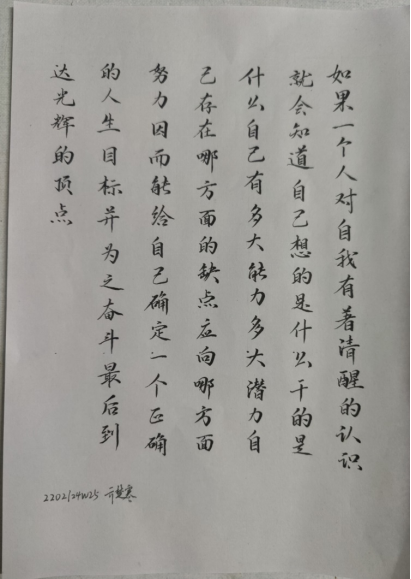 如果一个人对自我有着清醒的认识
就会知道自己想的是什么干的是
什么自己有多大能力多大潜力自
己存在哪方面的缺点应向哪方面
努力因而能给自己确定一个正确
的人生目标并为之奋斗最后到
达光辉的顶点